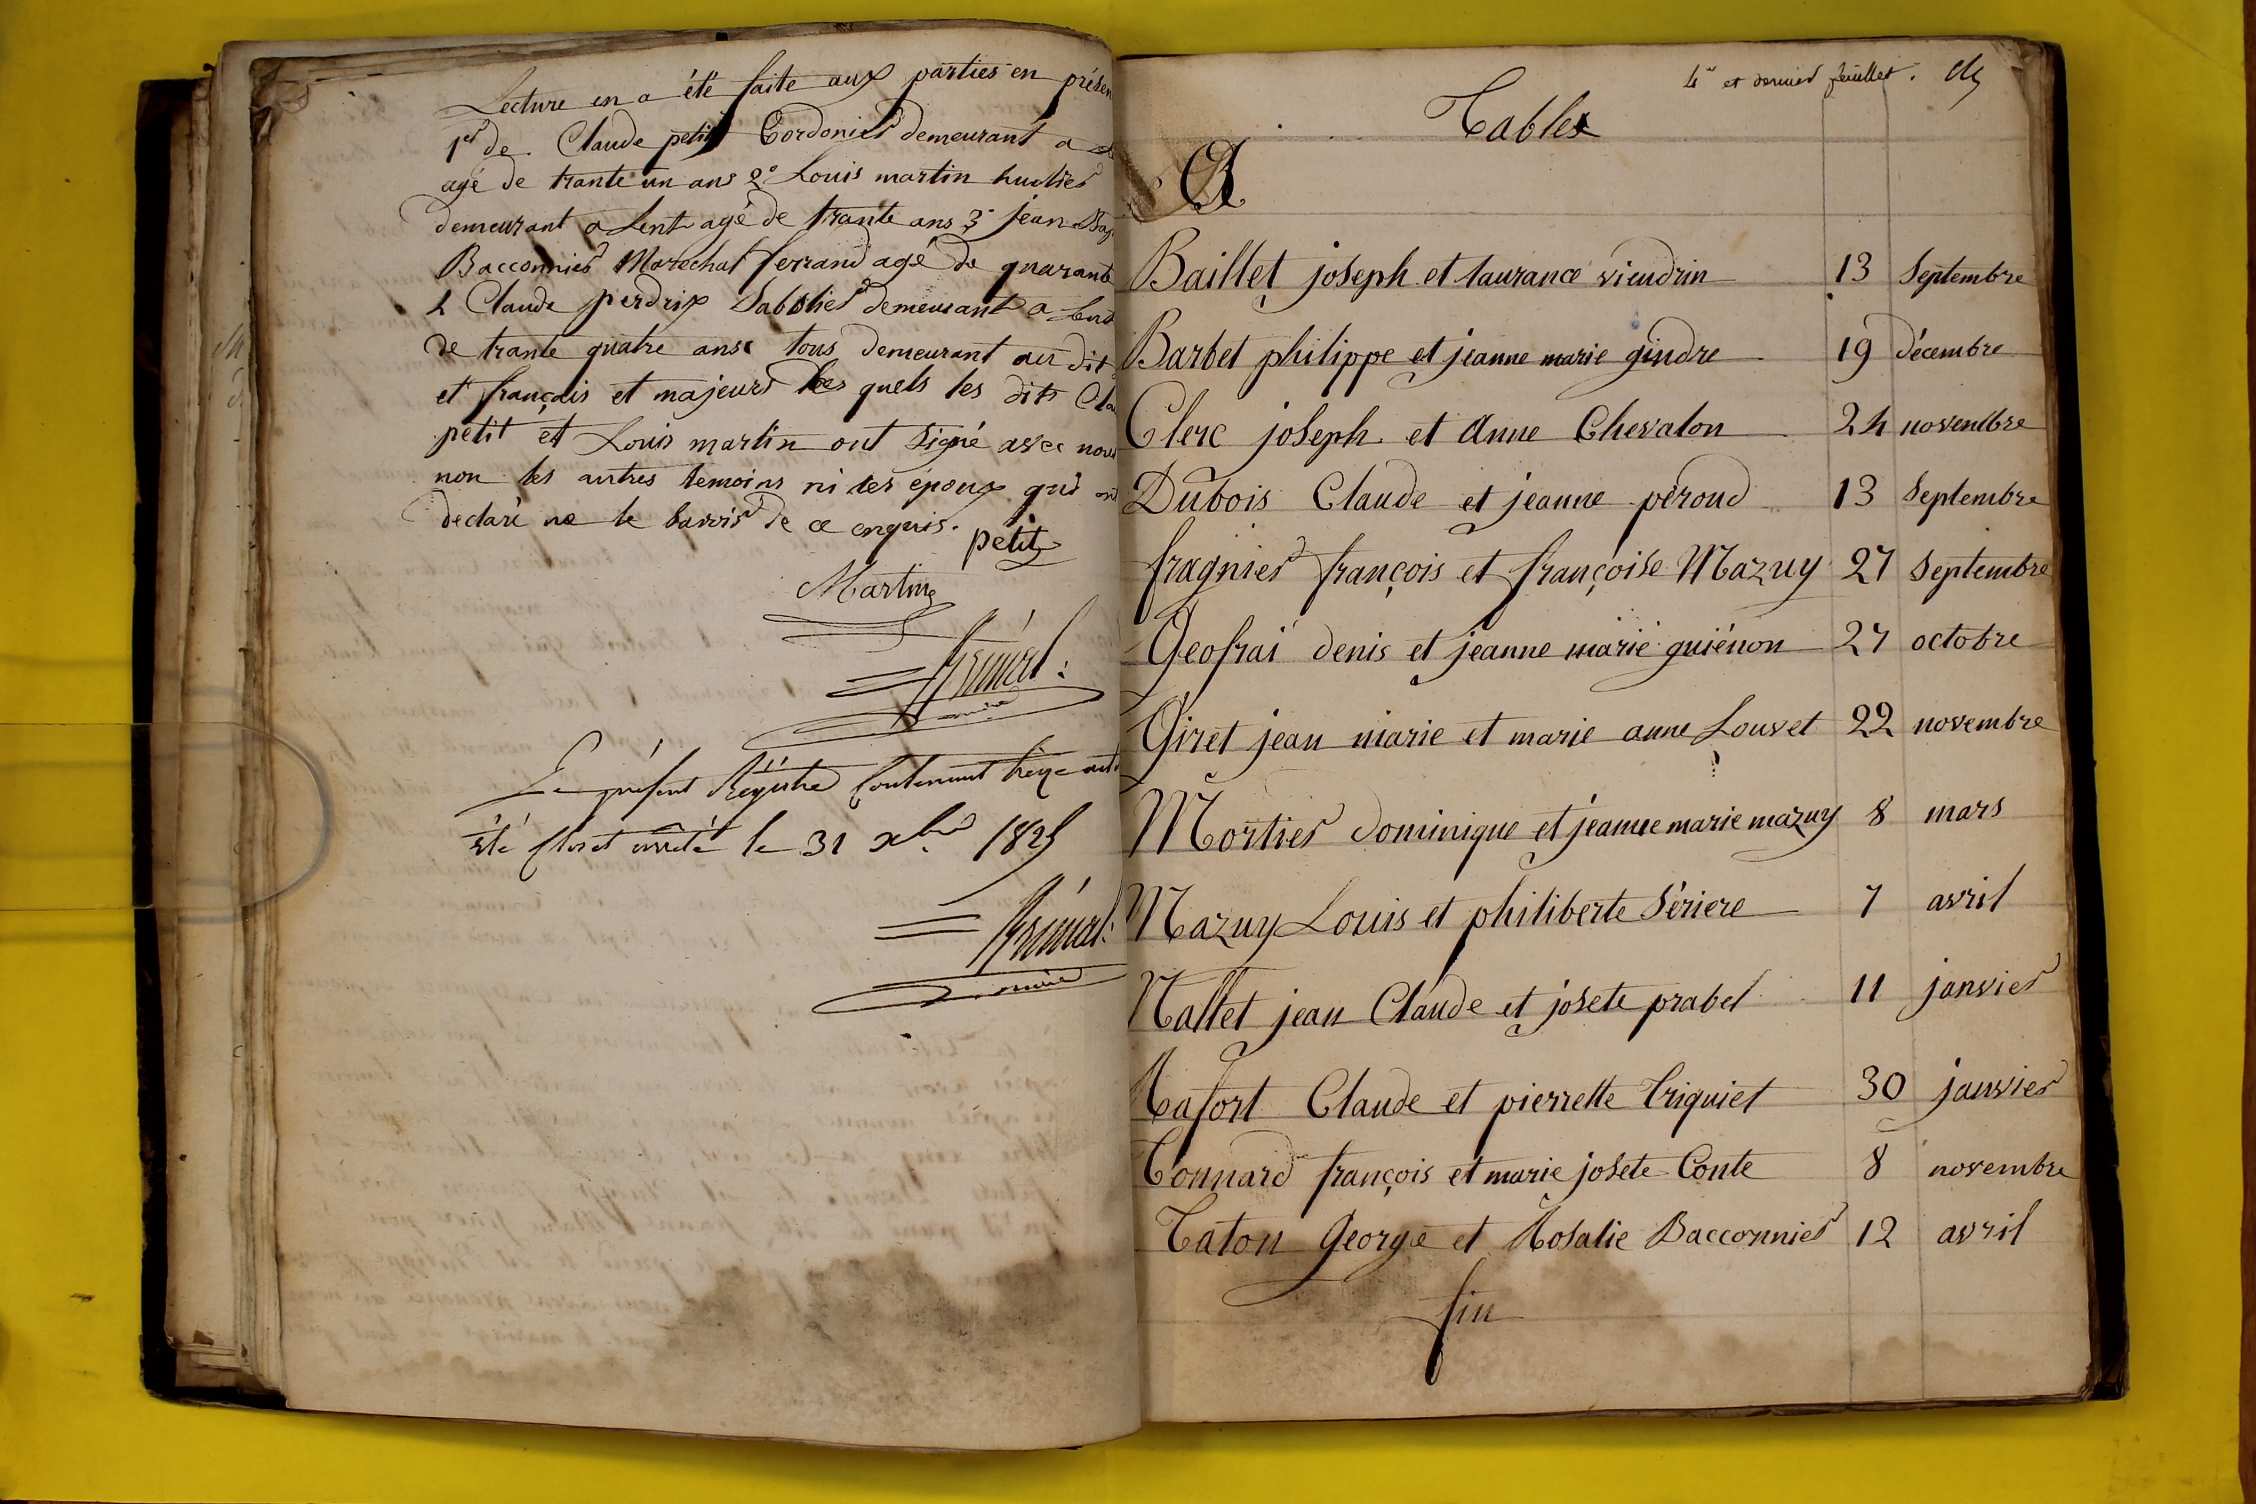 Lecture en a été faite aux parties en présen
1er de Claude petit Cordonier demeurant a
agé de trante un ans 2e Louis martin huclier
demeurant a Lent agé de trante ans 3e jean Bap
Bacconnier Marechal ferrand agé de quarante
4 Claude perdrix Sabotier demeurant a Lent
de trante quatre ans tous demeurant au dit
et français et majeurs les quels les dits Cla
petit et Louis martin ont signé avec nous
non les autres temoins ni les époux qui ont
declaré ne le savoir de ce enquis. petit
Martin
maire
Le présent Régistre Contenant treize actes
été clos et arrêté le 31 xbre 1825
maire
4e et dernier feuillet.
Tables
B
Baillet joseph et laurance vieudrin 13 Septembre
Barbet philippe et jeanne marie gindre 19 décembre
Clerc joseph et Anne Chevalon 24 novembre
Dubois Claude et jeanne péroud 13 Septembre
fragnier françois et françoise Mazuy 27 Septembre
Geofrai denis et jeanne marie guiénon 27 octobre
Giret jean marie et marie anne Louvet 22 novembre
Mortier dominique et jeanne marie mazuy 8 mars
Mazuy Louis et philiberte Sériere 7 avril
Nallet jean Claude et josete prabel 11 janvier
Rafort Claude et pierrette triquiet 30 janvier
Tonnard françois et marie josete Conte 8 novembre
Taton George et Rosalie Bacconnier 12 avril
fin